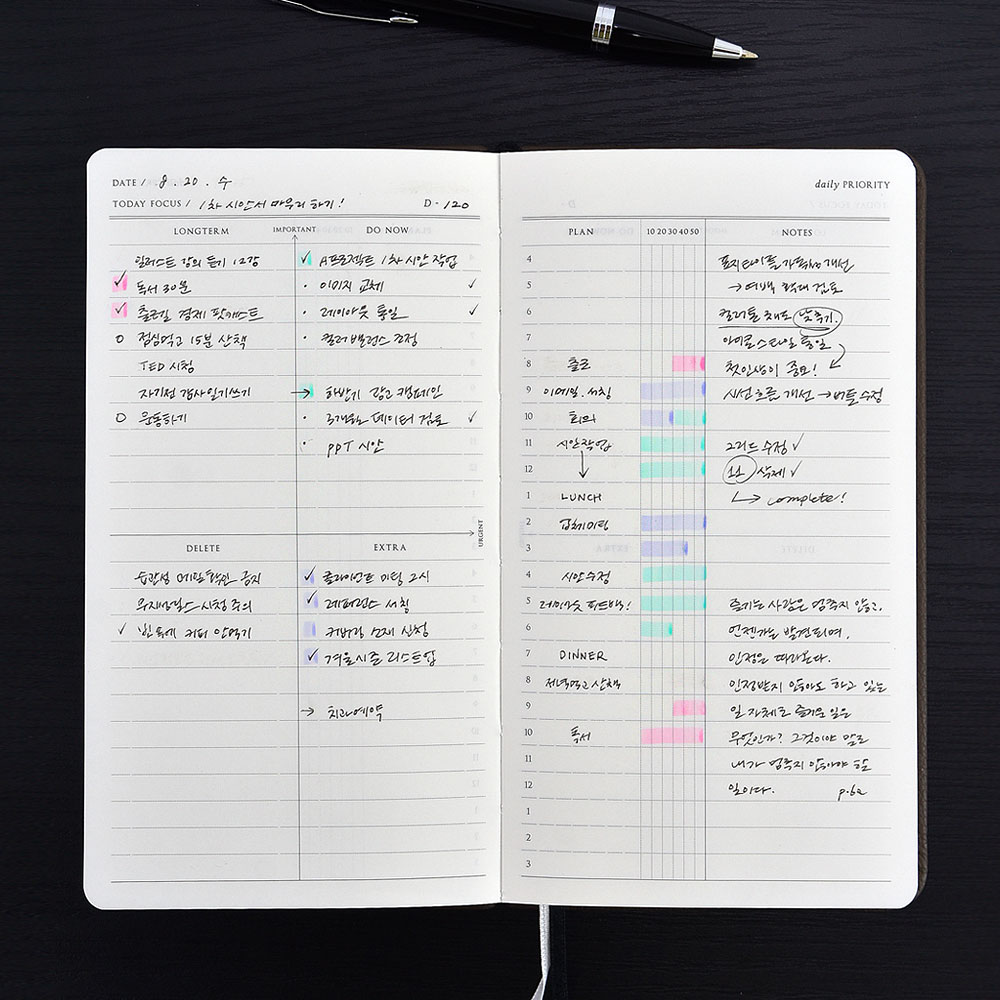 DATE / 8 . 20 . 수
TODAY FOCUS / 1차 시안서 마무리하기! D - 120
LONGTERM IMPORTANT DO NOW
일러스트 강의 듣기 12강
✓ 독서 30분
✓ 출근길 경제 팟캐스트
O 점심먹고 15분 산책
TED 시청
자기전 감사일기쓰기
O 운동하기
✓ A프로젝트 1차 시안 작업
· 이미지 교체 ✓
· 레이아웃 통일 ✓
· 컬러밸런스 조정
→ 하반기 광고 캠페인
· 3개년 데이터 검토 ✓
· PPT 시안
URGENT
DELETE EXTRA
습관성 메일확인 금지
시청 주의
✓ 빈속에 커피 안먹기
✓ 클라이언트 미팅 2시
✓ 레퍼런스 서칭
커버링 소재 신청
✓ 겨울시즌 리스트업
→ 치과예약
daily PRIORITY
PLAN 10 20 30 40 50 NOTES
4
5
6
7
8 출근
9 이메일, 서칭
10 회의
11 시안작업
12
1 LUNCH
2 업체미팅
3
4 시안수정
5 레이아웃 피드백!
6
7 DINNER
8 저녁먹고 산책
9
10 독서
11
12
1
2
3
표지타이틀 가독성 개선
→ 여백 확대 검토
컬러톤 채도 낮추기!
아이콘스타일 통일
첫인상이 중요!
시선흐름 개선 → 버튼수정
그리드 수정 ✓
11 삭제 ✓
→ complete!
즐기는 사람은 멈추지 않고,
언젠가는 발견되며,
인정은 따라온다.
인정받지 않아도 하고 있는
일 자체로 즐거운 일은
무엇인가? 그것이야 말로
내가 멈추지 않아야 할
일이다. p.62